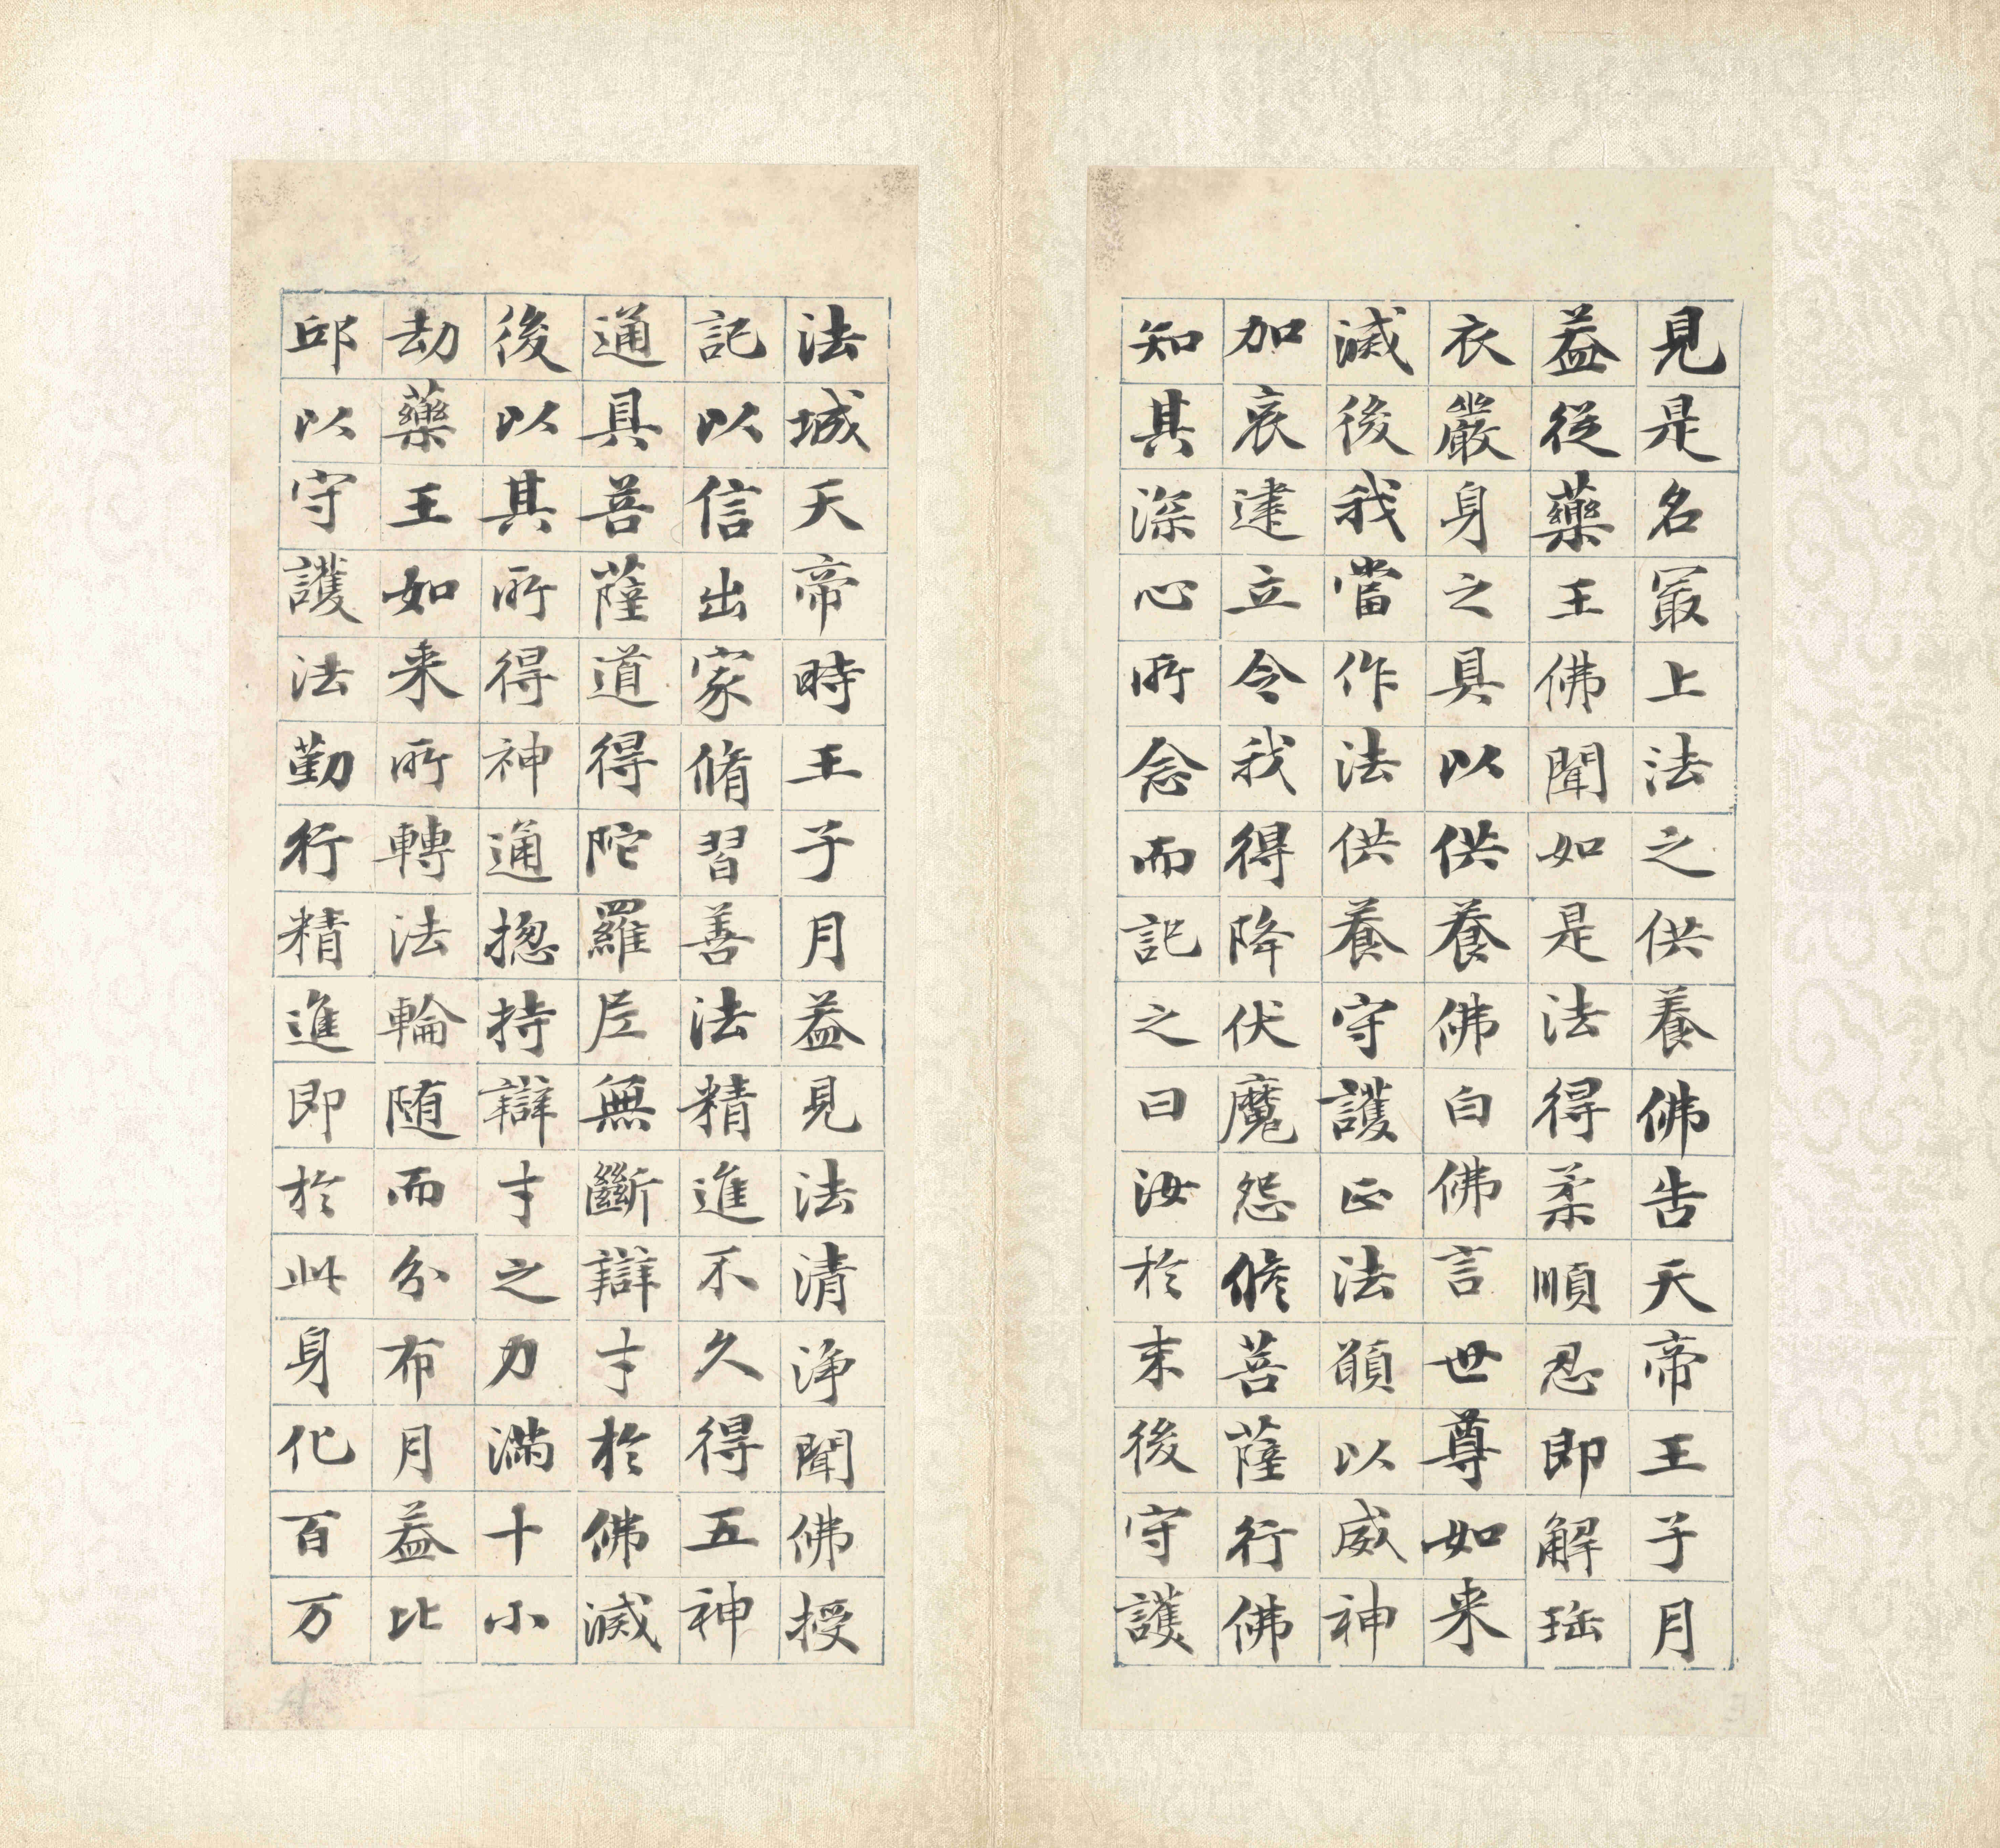 見是名冣上法之供養佛告天帝王子月
葢從藥王佛聞如是法得柔順忍即解珤
衣嚴身之具以供養佛白佛言世尊如来
滅後我當作法供養守護正法願以威神
加哀建立令我得降伏魔怨脩菩薩行佛
知其深心所念而記之曰汝於末後守護
法城天帝時王子月葢見法清浄聞佛授
記以信出家脩習善法精進不久得五神
通具菩薩道得陀羅尼無斷辯才於佛滅
後以其所得神通揔持辯才之力滿十小
劫藥王如来所轉法輪随而分布月葢比
邱以守護法勤行精進即於此身化百万